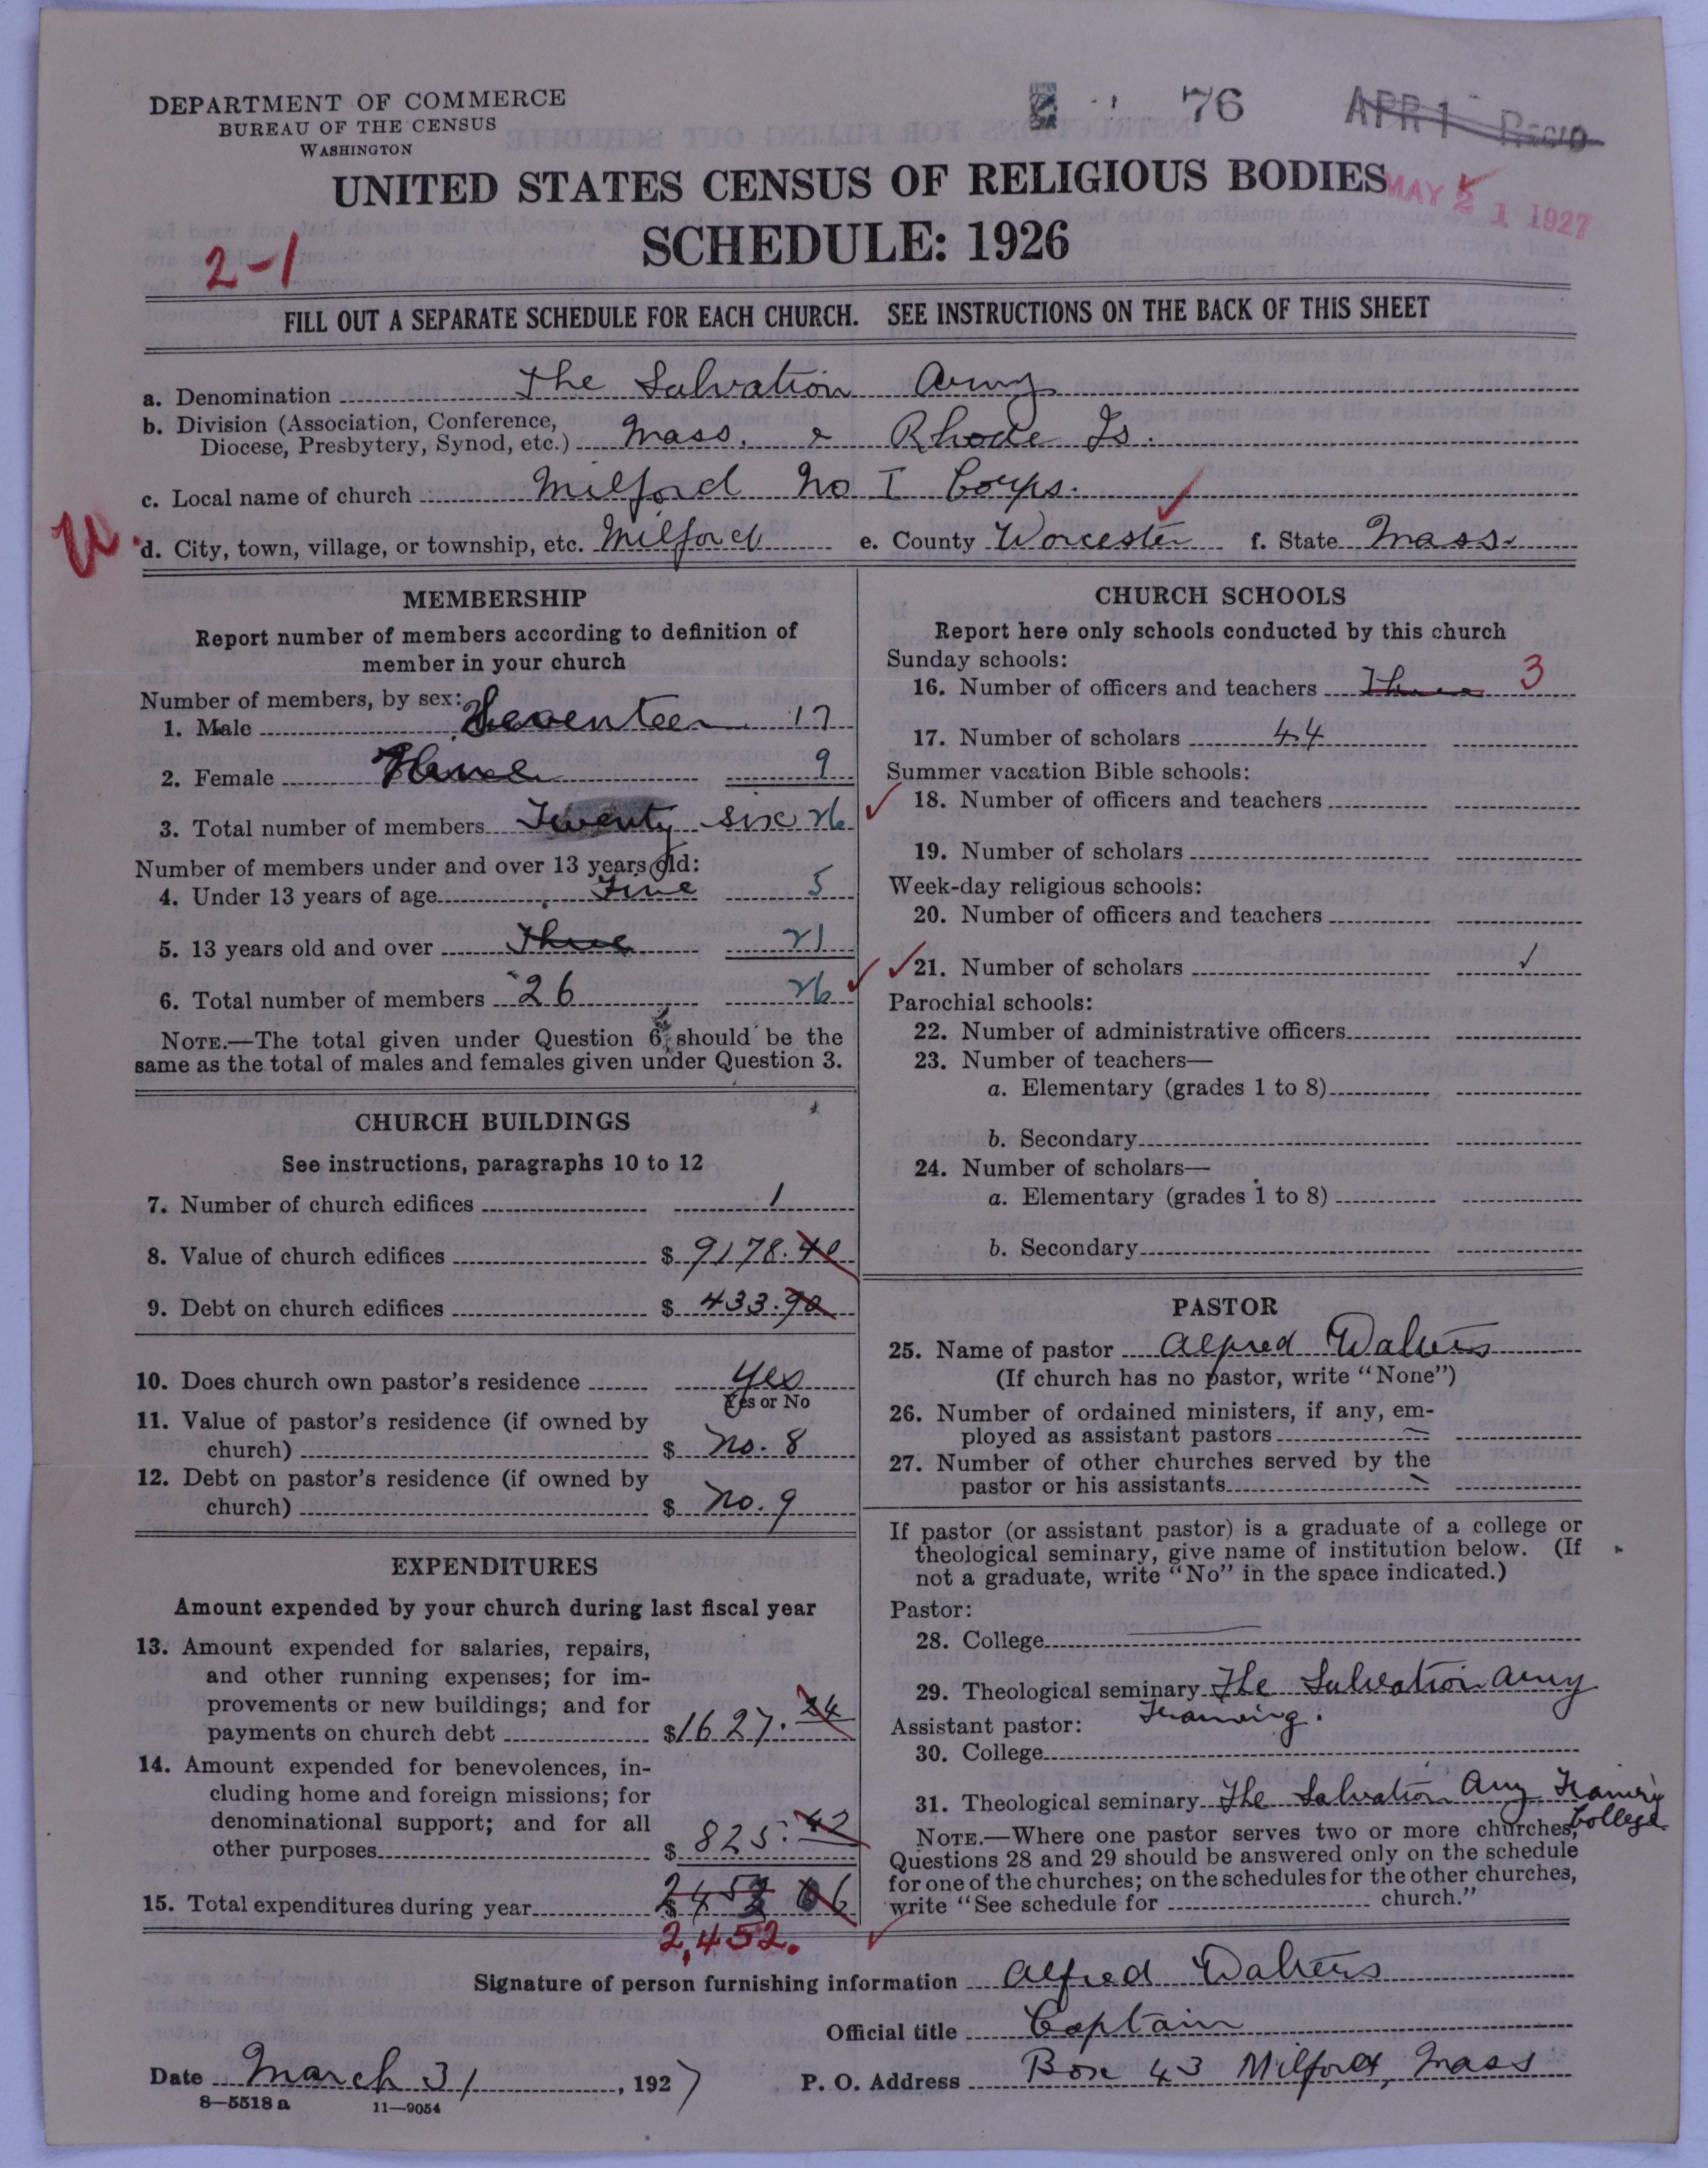 DEPARTMENT OF COMMERCE
BUREAU OF THE CENSUS
WASHINGTON
76
APR 1 REC'D
MAY 21 1927
UNITED STATES CENSUS OF RELIGIOUS BODIES
SCHEDULE: 1926
2-1
FILL OUT A SEPARATE SCHEDULE FOR EACH CHURCH. SEE INSTRUCTIONS ON THE BACK OF THIS SHEET
a. Denomination The Salvation Army
b. Division (Association, Conference,
Diocese, Presbytery, Synod, etc.) Mass. & Rhode Is.
c. Local name of church Milford No I Corps.
d. City, town, village, or township, etc. Milford e. County Worcester f. State Mass.
MEMBERSHIP
Report number of members according to definition of
member in your church
Number of members, by sex:
1. Male Seventeen 17
2. Female 9
3. Total number of members Twenty six 26
Number of members under and over 13 years old:
4. Under 13 years of age Five 5
5. 13 years old and over Three 21
6. Total number of members 26 26
NOTE.—The total given under Question 6 should be the
same as the total of males and females given under Question 3.
CHURCH BUILDINGS
See instructions, paragraphs 10 to 12
7. Number of church edifices 1
8. Value of church edifices $ 9178.40
9. Debt on church edifices $ 433.90
10. Does church own pastor's residence Yes
Yes or No
11. Value of pastor's residence (if owned by
church) $ No. 8
12. Debt on pastor's residence (if owned by
church) $ No. 9
EXPENDITURES
Amount expended by your church during last fiscal year
13. Amount expended for salaries, repairs,
and other running expenses; for im-
provements or new buildings; and for
payments on church debt $1627.24
14. Amount expended for benevolences, in-
cluding home and foreign missions; for
denominational support; and for all
other purposes $ 825.42
15. Total expenditures during year $ 2452 66
2,452.
CHURCH SCHOOLS
Report here only schools conducted by this church
Sunday schools:
16. Number of officers and teachers Three 3
17. Number of scholars 44
Summer vacation Bible schools:
18. Number of officers and teachers
19. Number of scholars
Week-day religious schools:
20. Number of officers and teachers
21. Number of scholars
Parochial schools:
22. Number of administrative officers
23. Number of teachers—
a. Elementary (grades 1 to 8)
b. Secondary
24. Number of scholars—
a. Elementary (grades 1 to 8)
b. Secondary
PASTOR
25. Name of pastor Alfred Walters
(If church has no pastor, write "None")
26. Number of ordained ministers, if any, em-
ployed as assistant pastors
27. Number of other churches served by the
pastor or his assistants
If pastor (or assistant pastor) is a graduate of a college or
theological seminary, give name of institution below. (If
not a graduate, write "No" in the space indicated.)
Pastor:
28. College
29. Theological seminary The Salvation Army
Training.
Assistant pastor:
30. College
31. Theological seminary The Salvation Army Training
College
NOTE.—Where one pastor serves two or more churches,
Questions 28 and 29 should be answered only on the schedule
for one of the churches; on the schedules for the other churches,
write "See schedule for church."
Signature of person furnishing information Alfred Walters
Official title Captain
Date March 31, 1927 P. O. Address Box 43 Milford, Mass
8—5518 a 11—9054